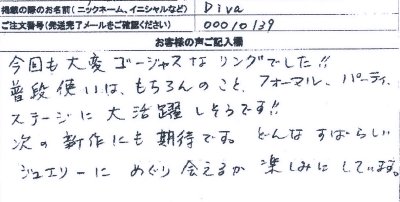 掲載の際のお名前(ニックネーム、イニシャルなど) Diva
ご注文番号(発送完了メールをご確認ください) 00010139
お客様の声ご記入欄
今回も大変ゴージャスなリングでした!!
普段使いは、もちろんのこと、フォーマル、パーティ、
ステージに大活躍しそうです!!
次の新作にも期待です。どんなすばらしい
ジュエリーにめぐり会えるか楽しみにしています。